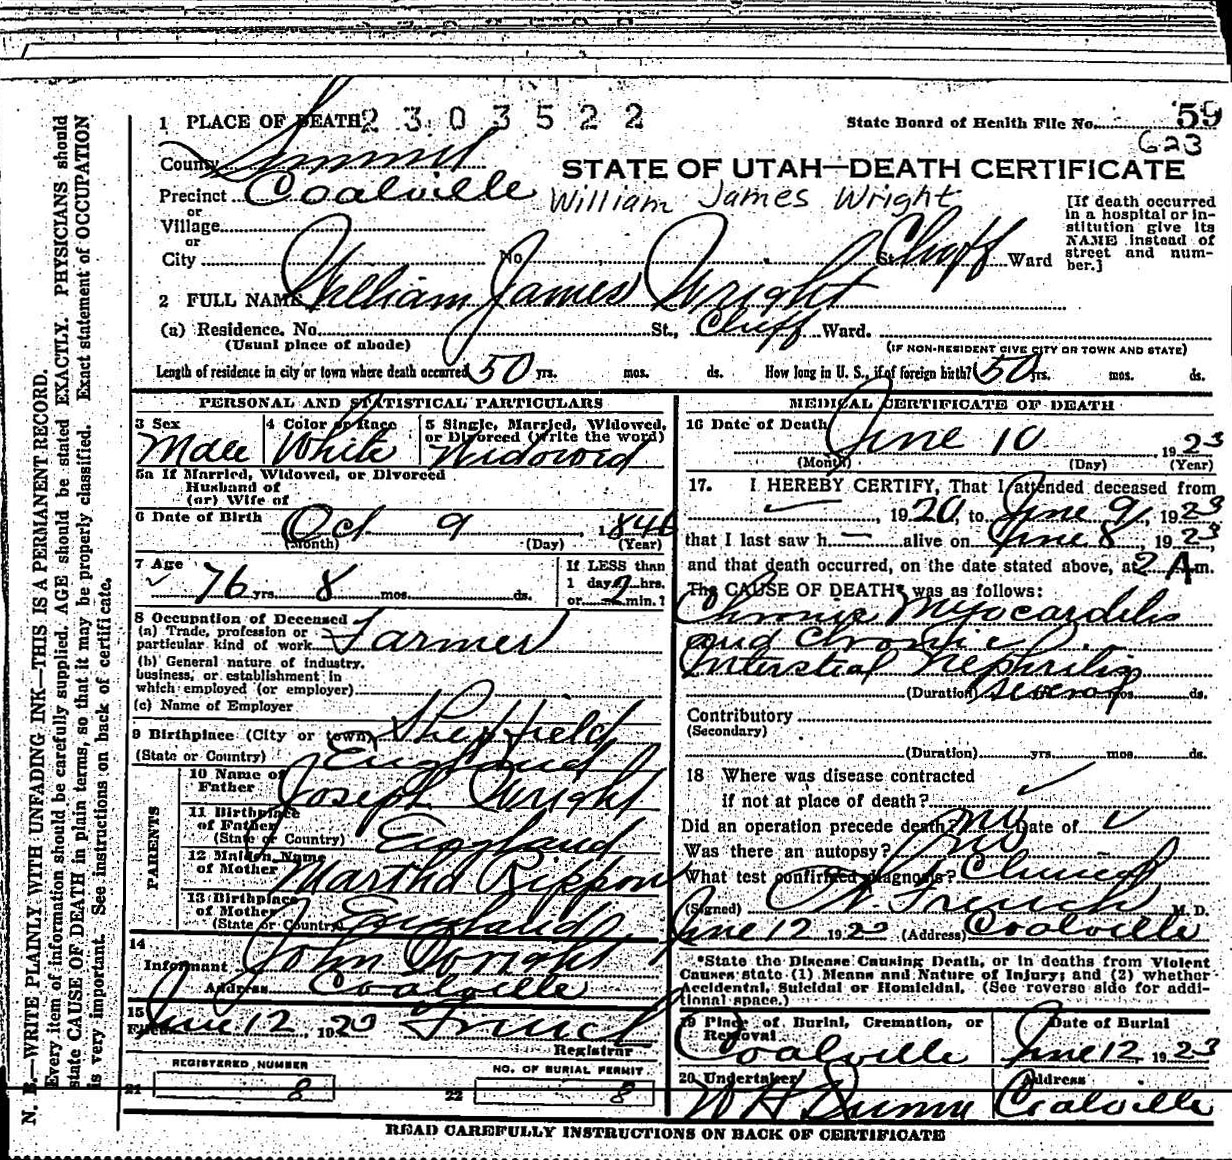 1 PLACE OF DEATH 2303522
State Board of Health File No. 59
623
County Summit
STATE OF UTAH—DEATH CERTIFICATE
Precinct Coalville
William James Wright
or
Village
or
City No. St. Cluff Ward
[If death occurred
in a hospital or in-
stitution give its
NAME instead of
street and num-
ber.]
2 FULL NAME William James Wright
(a) Residence. No. St., Cluff Ward.
(Usual place of abode)
(IF NON-RESIDENT GIVE CITY OR TOWN AND STATE)
Length of residence in city or town where death occurred 50 yrs. mos. ds. How long in U. S., if of foreign birth? 50 yrs. mos. ds.
PERSONAL AND STATISTICAL PARTICULARS
3 Sex
Male
4 Color or Race
White
5 Single, Married, Widowed,
or Divorced (write the word)
Widowed
5a If Married, Widowed, or Divorced
Husband of
(or) Wife of
6 Date of Birth Oct 9, 1846
(Month) (Day) (Year)
7 Age
76 yrs. 8 mos. ds.
If LESS than
1 day hrs.
or min.?
8 Occupation of Deceased
(a) Trade, profession or
particular kind of work Farmer
(b) General nature of industry.
business, or establishment in
which employed (or employer)
(c) Name of Employer
9 Birthplace (City or town) Sheffield
(State or Country) England
PARENTS
10 Name of
Father Joseph Wright
11 Birthplace
of Father
(State or Country) England
12 Maiden Name
of Mother Martha Rippon
13 Birthplace
of Mother
(State or Country) England
14
Informant John Wright
Address Coalville
15
Filed June 12, 1923 French
Registrar
REGISTERED NUMBER
21 8
NO. OF BURIAL PERMIT
22 8
MEDICAL CERTIFICATE OF DEATH
16 Date of Death June 10 1923
(Month) (Day) (Year)
17. I HEREBY CERTIFY, That I attended deceased from
, 1920, to June 9, 1923
that I last saw h— alive on June 8, 1923,
and that death occurred, on the date stated above, at 2 A m.
The CAUSE OF DEATH* was as follows:
Chronic Myocarditis
and Chronic
Interstial Nephritis
(Duration) several mos. ds.
Contributory
(Secondary)
(Duration) yrs. mos. ds.
18 Where was disease contracted
If not at place of death?
Did an operation precede death? no Date of
Was there an autopsy? no
What test confirmed diagnosis? Clinical
(Signed) French M. D.
June 12 1923 (Address) Coalville
*State the Disease Causing Death, or in deaths from Violent
Causes state (1) Means and Nature of Injury; and (2) whether
Accidental, Suicidal or Homicidal. (See reverse side for addi-
tional space.)
19 Place of Burial, Cremation, or
Removal
Coalville
Date of Burial
June 12 1923
20 Undertaker
W H Dunn
Address
Coalville
READ CAREFULLY INSTRUCTIONS ON BACK OF CERTIFICATE
N. B.—WRITE PLAINLY WITH UNFADING INK—THIS IS A PERMANENT RECORD.
Every item of information should be carefully supplied. AGE should be stated EXACTLY. PHYSICIANS should
state CAUSE OF DEATH in plain terms, so that it may be properly classified. Exact statement of OCCUPATION
is very important. See instructions on back of certificate.